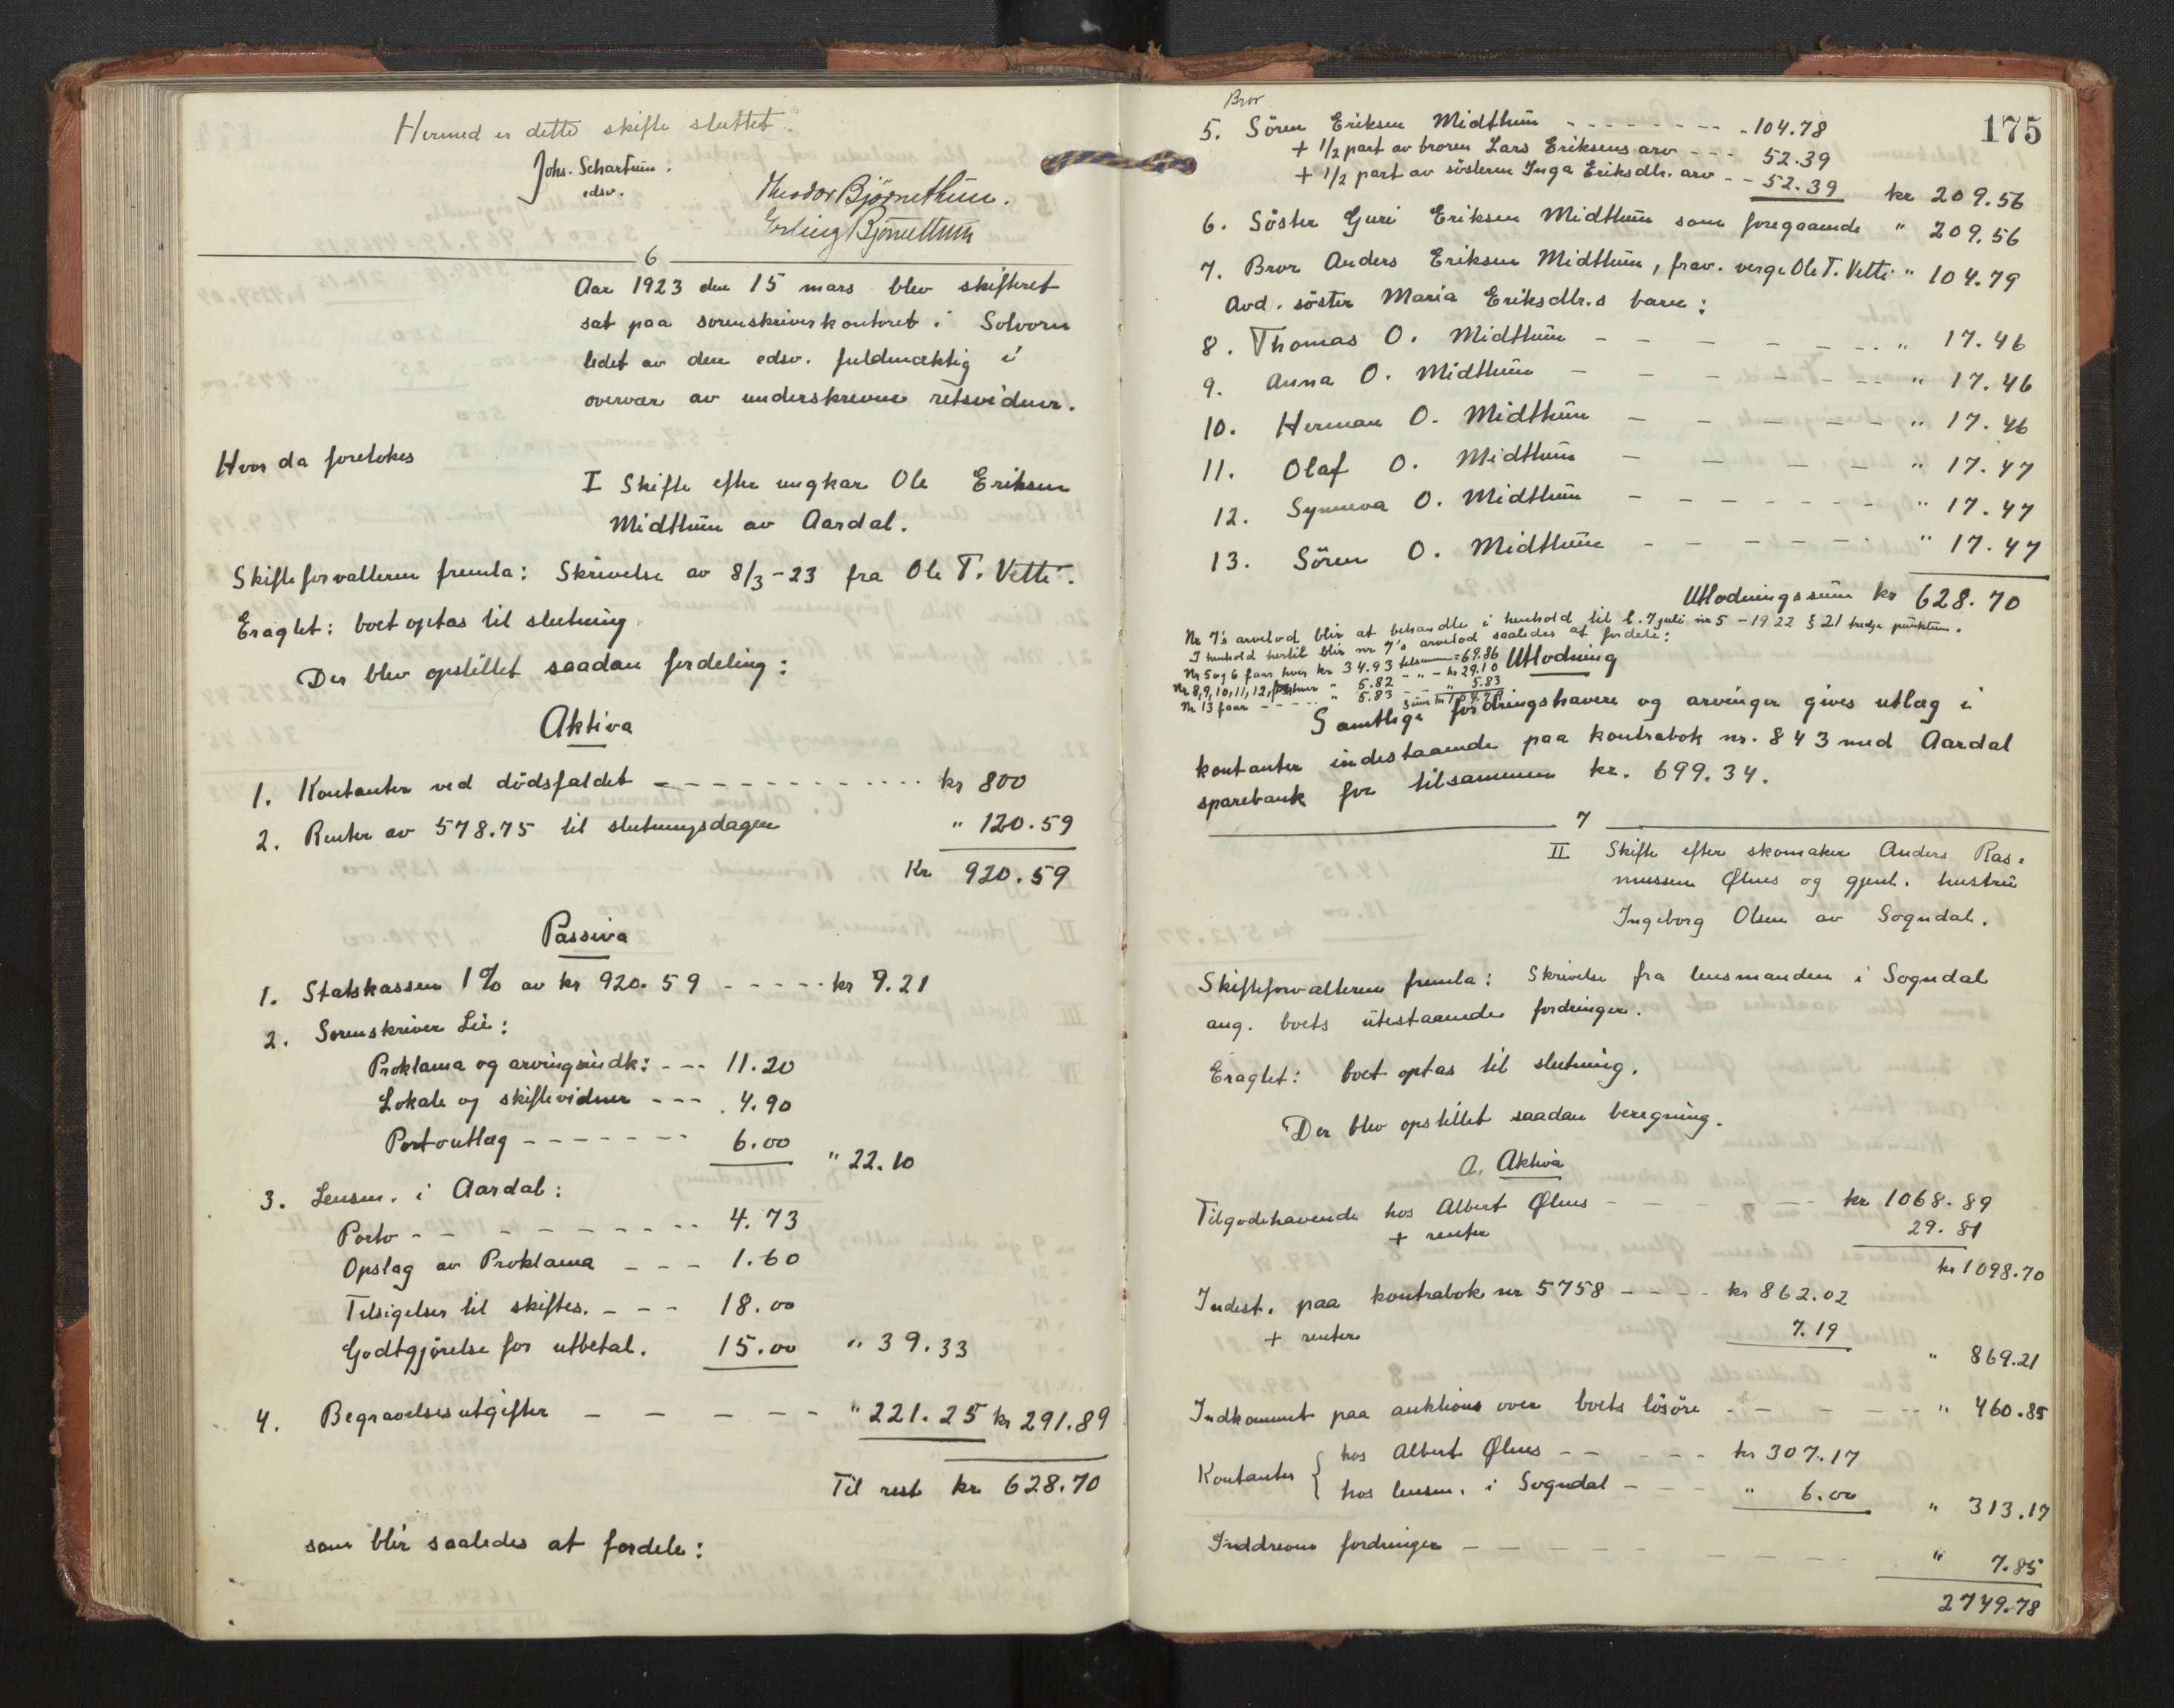 Hermed er dette skifte sluttet.
Johs. Schartum.
edsv.
Theodor Bjørnethun.
Erling Bjørnethun
6
Aar 1923 den 15 mars blev skifteret
sat paa sorenskriverkontoret i Solvorn
ledet av den edsv. fuldmæktig i
overvær av underskrevne retsvidner.
Hvor da foretokes
I Skifte efter ungkar Ole Eriksen
Midthun av Aardal.
Skifteforvalteren fremla: Skrivelse av 8/3-23 fra Ole T. Vetti.
Eragtet: boet optas til slutning
Der blev opstillet saadan fordeling:
Aktiva
1. Kontanter ved dödsfaldet - - - - - - - - - - - - kr 800
2. Renter av 578.75 til slutningsdagen " 120.59
Kr 920.59
Passiva
1. Statskassen 1% av kr 920.59 - - - - - kr 9.21
2. Sorenskriver Lie:
Proklama og arvingsindk: - - - 11.20
Lokale og skiftevidner - - - 4.90
Portoutlæg - - - - - - - 6.00
" 22.10
3. Lensm. i Aardal:
Porto - - - - - - - - - 4.73
Opslag av Proklama - - - 1.60
Tilsigelser til skiftes. - - - 18.00
Godtgjörelse for utbetal. 15.00 " 39.33
4. Begravelsesutgifter - - - - - - " 221.25 kr 291.89
Til rest kr 628.70
som blir saaledes at fordele:
175
Bror
5. Sören Eriksen Midthun - - - - - - - - 104.78
+ 1/2 part av broren Lars Eriksens arv - - - 52.39
+ 1/2 part av sösteren Inga Eriksdtr. arv - - 52.39 kr 209.56
6. Söster Guri Eriksen Midthun som foregaaende " 209.56
7. Bror Anders Eriksen Midthun, frav. verge Ole T. Vetti " 104.79
Avd. söster Maria Eriksdtr.s barn:
8. Thomas O. Midthun - - - - - - - - " 17.46
9. Anna O. Midthun - - - - - - - - " 17.46
10. Herman O. Midthun - - - - - - " 17.46
11. Olaf O. Midthun - - - - - " 17.47
12. Synneva O. Midthun - - - - - - - " 17.47
13. Sören O. Midthun - - - - - - . " 17.47
Utlodningssum kr 628.70
Nr 7's arvelod blir at behandle i henhold til l. 7 juli nr 5 - 1922 § 21 tredje punktum.
I henhold hertil blir nr 7's arvelod saaledes at fordele:
Nr 5 og 6 faar hver kr 34.93 tilsammen = 69.86
Nr 8, 9, 10, 11, 12, hver " 5.82 - " - kr 29.10
Nr 13 faar - - - - - " 5.83 - - " 5.83
Sum kr 104.79
Utlodning
Samtlige fordringshavere og arvinger gives utlæg i
kontanter indestaaende paa kontrabok nr. 843 med Aardal
sparebank for tilsammen kr. 699.34.
7
II Skifte efter skomaker Anders Ras-
mussen Ølnes og gjenl. hustru
Ingeborg Olsen av Sogndal.
Skifteforvalteren fremla: Skrivelse fra lensmanden i Sogndal
ang. boets utestaaende fordringer.
Eragtet: boet optas til slutning.
Der blev opstillet saadan beregning.
A. Aktiva
Tilgodehavende hos Albert Ølnes - - - - - - kr 1068.89
+ renter 29.81
kr 1098.70
Indest. paa kontrabok nr 5758 - - - - kr 862.02
+ renter 7.19
" 869.21
Indkommet paa auktions over boets lösöre - - - - - - " 460.85
Kontanter { hos Albert Ølnes - - - - - - kr 307.17
hos lensm. i Sogndal - - - " 6.00 " 313.17
Inddrevne fordringer - - - - - - - - - - " 7.85
2749.78